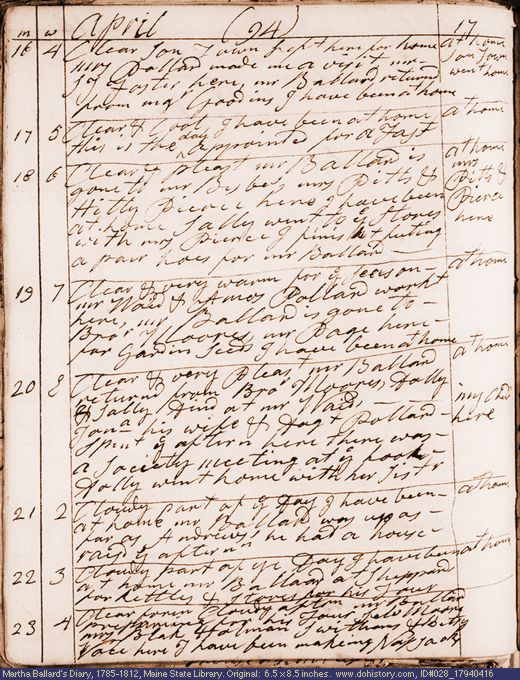 m w April (94) 17
16 4 Clear Son Town sett here for home at home
mrs Pollard made me a visit mrs Son Town
Foster here, mr Ballard returnd went home
from mr Goodins I have been at home
17 5 Clear & Cool I have been at home at home
this is the day appointed for a Fast
18 6 Clear & pleast mr Ballard is at home
gone to mr Bisbes mrs Pitts & mrs
Hitty Pierce here I have been Pitts &
at home Sally went to ye Stores Pierce
with mrs Pierce I finisht footing here
a pair hoes for mr Ballard
19 7 Clear & very warm for ye Season at home
mr Waid & Amos Pollard workt
here, mr Ballard is gone to
Bror Moores mr Page here
for Gardin Seed I have been at home
20 E Clear & very Pleast mr Ballard at home
returnd from Bror Moores Dolly
& Sally Dind at mr Waids my Child
Jona his wife & Dagt Pollard here
Spent ye aftern here there was
a Society meeting at ye hook
Dolly went home with her Sistr
21 2 Cloudy part of ye Day I have been at home
at home mr Ballard was up as
far as Andrews' he had a house
raisd ye aftern
22 3 Cloudy part of ye Day I have been at home
at home mr Ballard at Sheppard
for kettles & Stores for his Tour
23 4 Clear foren Cloudy aftern mr Ballard
preparing for his Tour
mrs Blak & Holman
here I have been making
Martha Ballard's Diary, 1785-1812, Maine State Library. Original: 6.5 x 8.5 inches. www.dohistory.com, ID#028_17940416